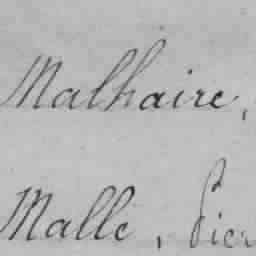 Malhaire,
Malle, Pier